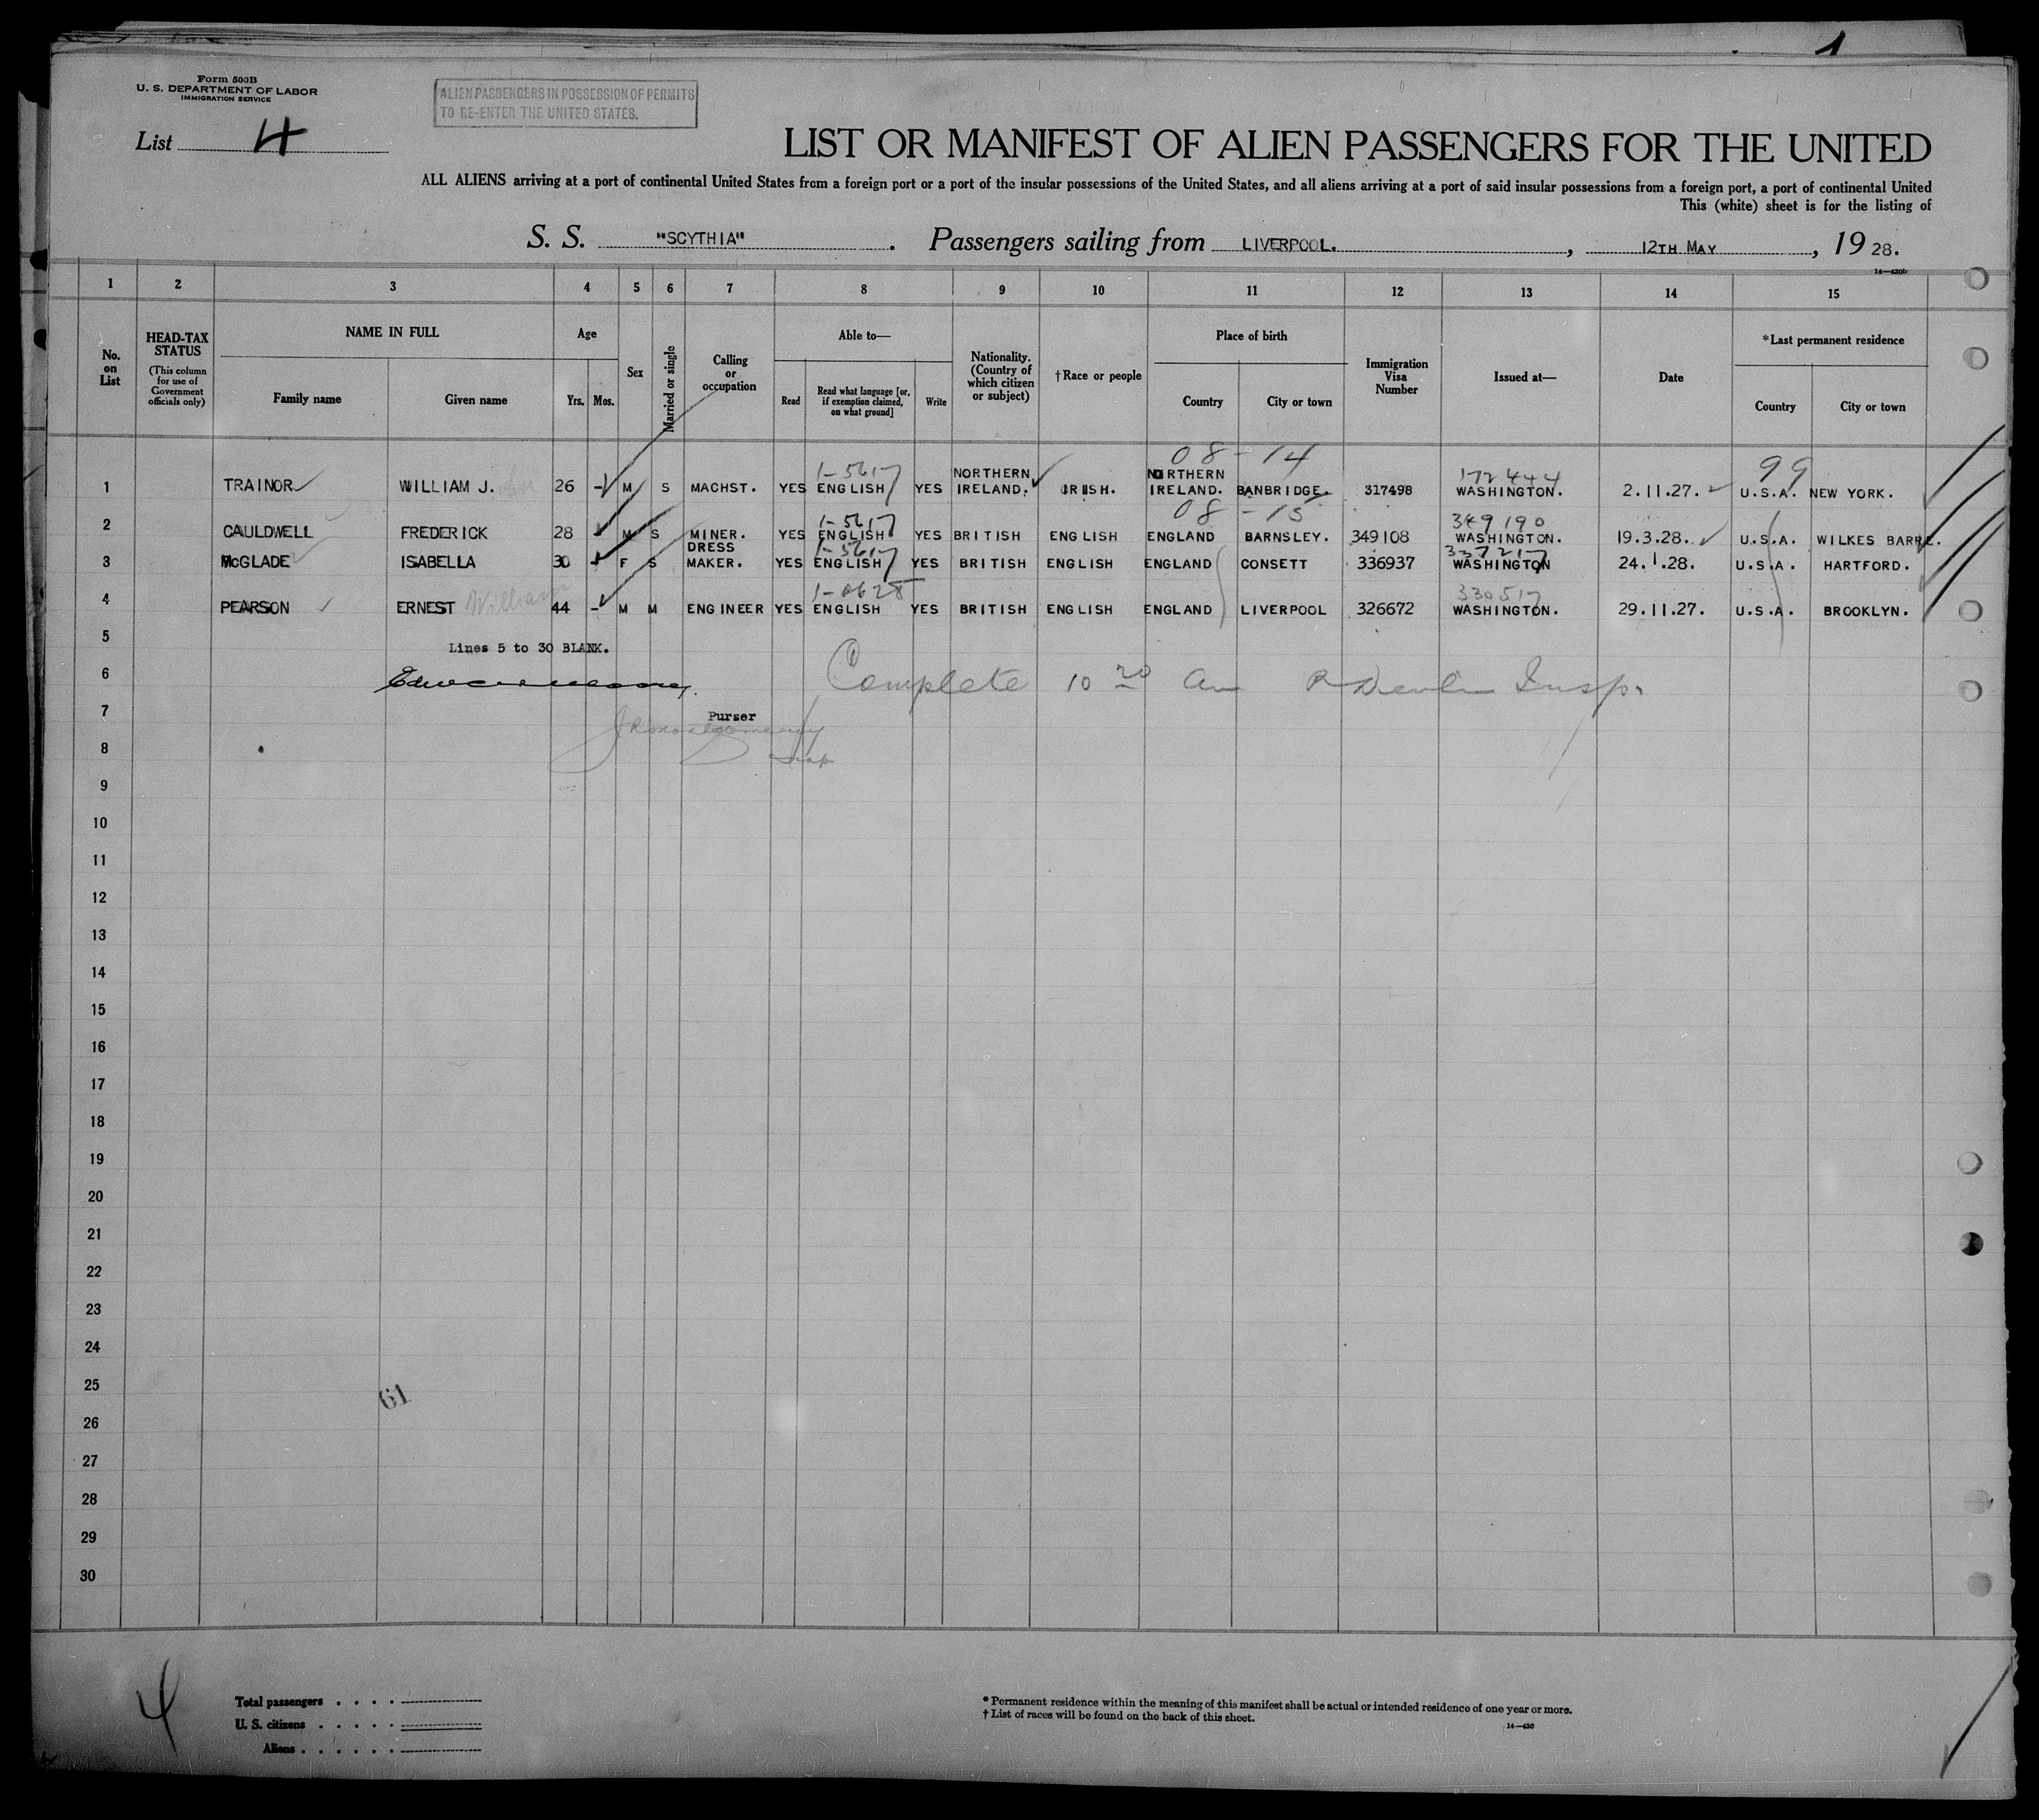 1
Form 500B
U. S. DEPARTMENT OF LABOR
IMMIGRATION SERVICE
ALIEN PASSENGERS IN POSSESSION OF PERMITS
TO RE-ENTER THE UNITED STATES.
List 4
LIST OR MANIFEST OF ALIEN PASSENGERS FOR THE UNITED
ALL ALIENS arriving at a port of continental United States from a foreign port or a port of the insular possessions of the United States, and all aliens arriving at a port of said insular possessions from a foreign port, a port of continental United
This (white) sheet is for the listing of
S. S. "SCYTHIA". Passengers sailing from LIVERPOOL., 12TH MAY, 19 28.
14—430b
1 2 3 4 5 6 7 8 9 10 11 12 13 14 15
No. on List
HEAD-TAX STATUS
(This column for use of Government officials only)
NAME IN FULL
Family name Given name
Age
Yrs. Mos.
Sex
Married or single
Calling or occupation
Able to—
Read Read what language [or, if exemption claimed, on what ground] Write
Nationality. (Country of which citizen or subject)
†Race or people
Place of birth
Country City or town
Immigration Visa Number
Issued at—
Date
*Last permanent residence
Country City or town
08-14
1-5617 NORTHERN NORTHERN 172444 99
1 TRAINOR WILLIAM J. 26 - M S MACHST. YES ENGLISH YES IRELAND. IRISH. IRELAND. BANBRIDGE. 317498 WASHINGTON. 2.11.27. U.S.A. NEW YORK.
1-5617 08-15 349190
2 CAULDWELL FREDERICK 28 - M S MINER. YES ENGLISH YES BRITISH ENGLISH ENGLAND BARNSLEY. 349108 WASHINGTON. 19.3.28. U.S.A. WILKES BARRE.
DRESS 1-5617 337217
3 McGLADE ISABELLA 30 - F S MAKER. YES ENGLISH YES BRITISH ENGLISH ENGLAND CONSETT 336937 WASHINGTON 24.1.28. U.S.A. HARTFORD.
1-0628 330517
4 PEARSON ERNEST William 44 - M M ENGINEER YES ENGLISH YES BRITISH ENGLISH ENGLAND LIVERPOOL 326672 WASHINGTON. 29.11.27. U.S.A. BROOKLYN.
5
Lines 5 to 30 BLANK.
6 Complete 10 20 am Insp.
7 Purser
8
9
10
11
12
13
14
15
16
17
18
19
20
21
22
23
24
25
61
26
27
28
29
30
4
Total passengers . . . .
U. S. citizens . . . . .
Aliens . . . . . .
* Permanent residence within the meaning of this manifest shall be actual or intended residence of one year or more.
† List of races will be found on the back of this sheet.
14—430